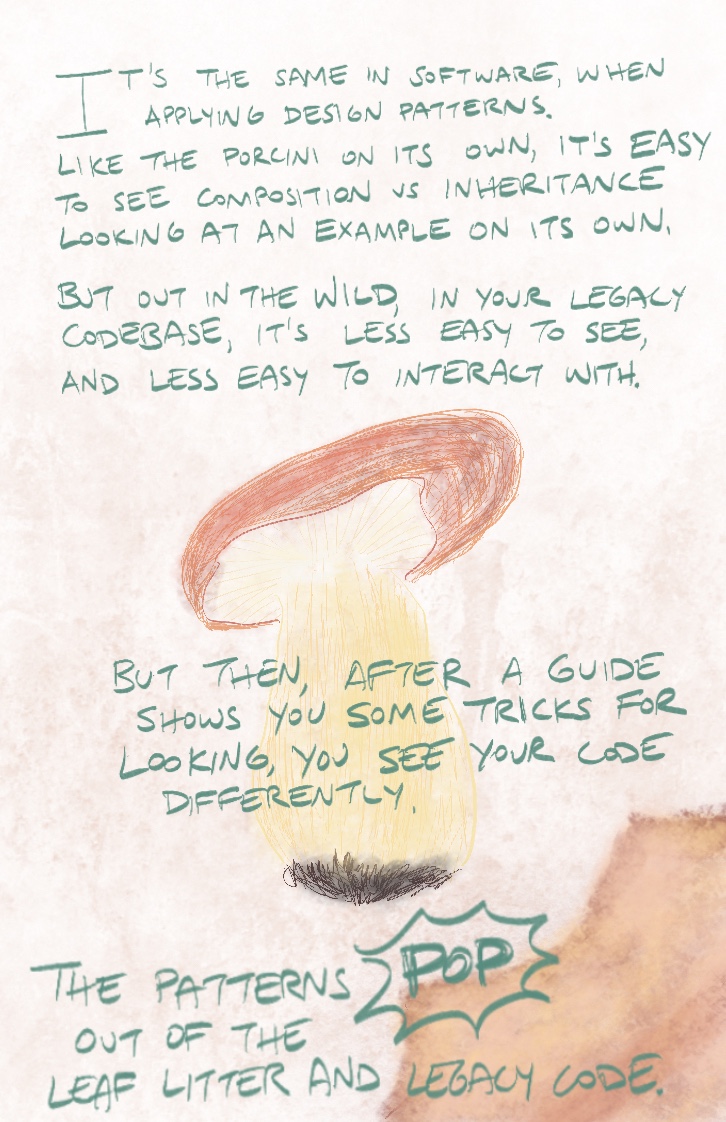 IT'S THE SAME IN SOFTWARE, WHEN
APPLYING DESIGN PATTERNS.
LIKE THE PORCINI ON ITS OWN, IT'S EASY
TO SEE COMPOSITION VS INHERITANCE
LOOKING AT AN EXAMPLE ON ITS OWN.
BUT OUT IN THE WILD, IN YOUR LEGACY
CODEBASE, IT'S LESS EASY TO SEE,
AND LESS EASY TO INTERACT WITH.
BUT THEN, AFTER A GUIDE
SHOWS YOU SOME TRICKS FOR
LOOKING, YOU SEE YOUR CODE
DIFFERENTLY.
THE PATTERNS POP
OUT OF THE
LEAF LITTER AND LEGACY CODE.